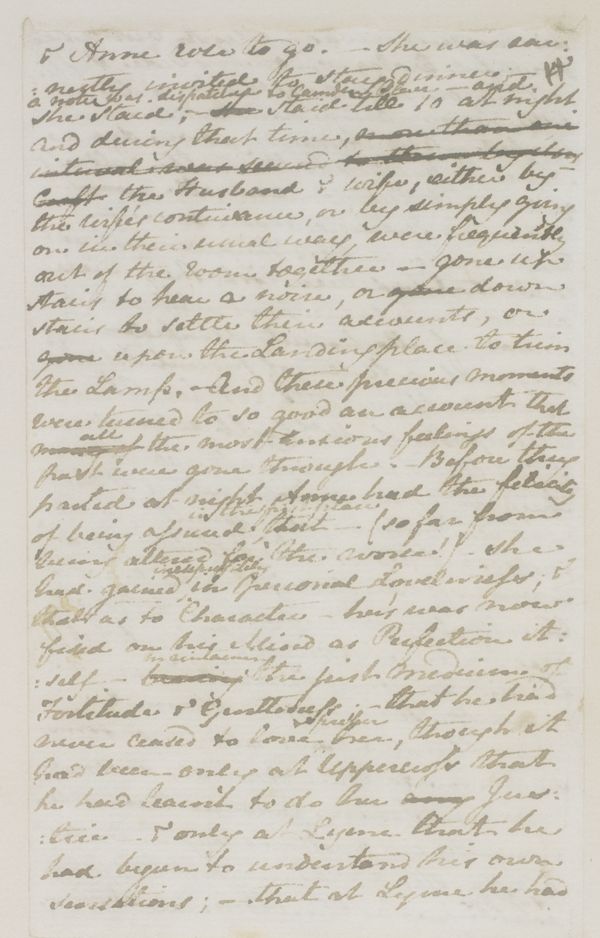 & Anne rose to go. — She was ear:
:nestly invited to stay dinner.
a note was dispatched to Camden Place — and
She staid; — staid till 10 at night
and during that time,
the Husband & wife, either by
the wife's contrivance, or by simply going
on in their usual way, were frequently
out of the room together — gone up
stairs to hear a noise, or gone down
stairs to settle their accounts, or
gone upon the Landing place to trim
the Lamp. — And these precious moments
were turned to so good an account that
all the most anxious feelings of the
past were gone through. — Before they
parted at night, Anne had the felicity
in the first place
of being assured that — (so far from
being altered for the worse!) — She
had gained inexpressibly in personal Loveliness; &
that as to Character — her's was now
fixed on his Mind as Perfection it:
maintaining
:self — the just Medium of
Fortitude & Gentleness; — that he had
never ceased to love & prefer her, though it
had been only at Uppercross that
he had learnt to do her any Jus:
:tice — & only at Lyme that he
had begun to understand his own
sensations; — that at Lyme he had